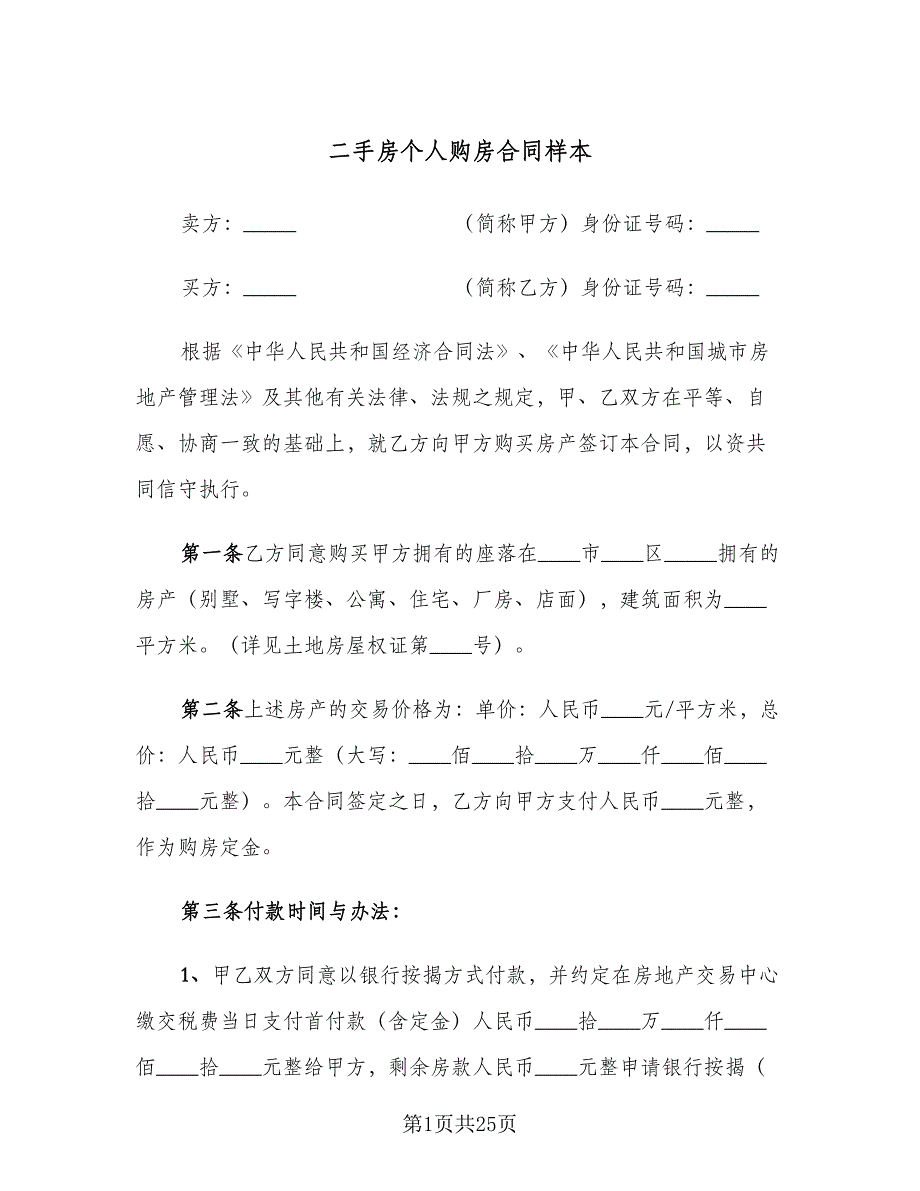 二手房个人购房合同样本
卖方：_____ （简称甲方）身份证号码：_____
买方：_____ （简称乙方）身份证号码：_____
根据《中华人民共和国经济合同法》、《中华人民共和国城市房
地产管理法》及其他有关法律、法规之规定，甲、乙双方在平等、自
愿、协商一致的基础上，就乙方向甲方购买房产签订本合同，以资共
同信守执行。
第一条乙方同意购买甲方拥有的座落在____市____区_____拥有的
房产（别墅、写字楼、公寓、住宅、厂房、店面），建筑面积为____
平方米。（详见土地房屋权证第____号）。
第二条上述房产的交易价格为：单价：人民币____元/平方米，总
价：人民币____元整（大写：____佰____拾____万____仟____佰____
拾____元整）。本合同签定之日，乙方向甲方支付人民币____元整，
作为购房定金。
第三条付款时间与办法：
1、甲乙双方同意以银行按揭方式付款，并约定在房地产交易中心
缴交税费当日支付首付款（含定金）人民币____拾____万____仟____
佰____拾____元整给甲方，剩余房款人民币____元整申请银行按揭（
第1页共25页